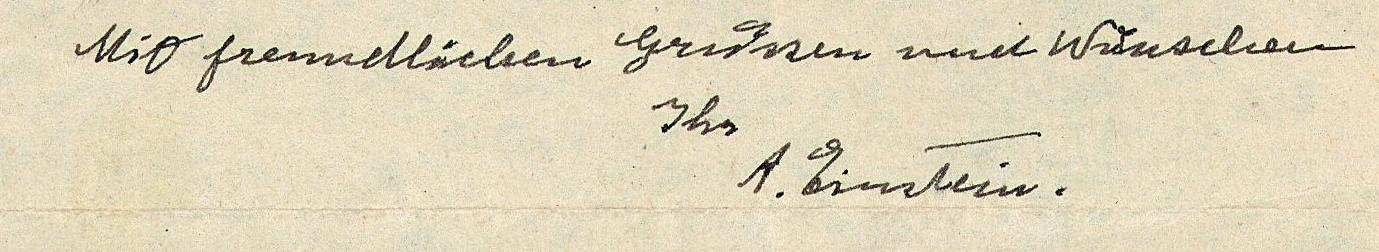 Mit freundlichen Grüssen und Wünschen
Ihr
A. Einstein.